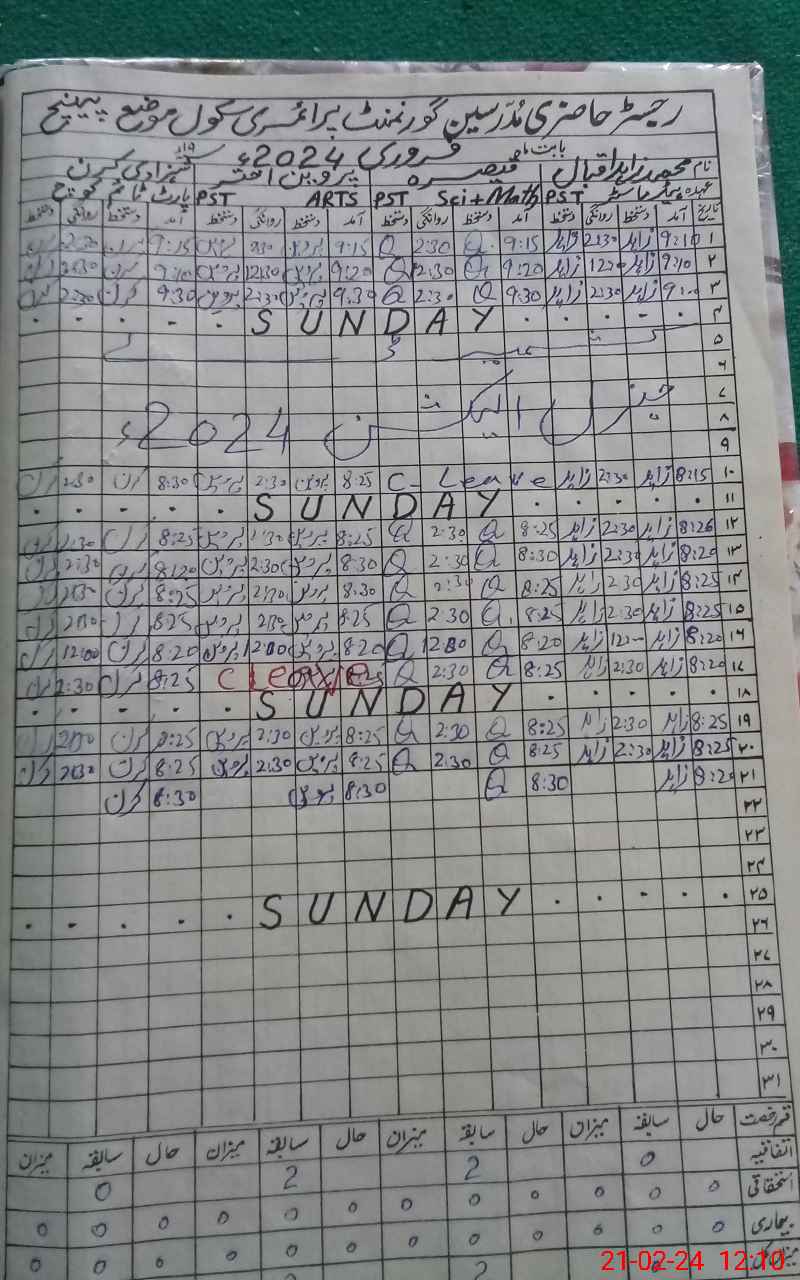 رجسٹر حاضری مُدرسین گورنمنٹ پرائمری سکول موضع
بابت ماہ فروری 2024ء
نام محمد زاہد اقبال قیصرہ پروین اختر شہزادی کرن
عہدہ ہیڈ ماسٹر PST Sci+Math PST ARTS PST پارٹ ٹائم کوچ
تاریخ آمد دستخط روانگی دستخط آمد دستخط روانگی دستخط آمد دستخط روانگی دستخط آمد دستخط روانگی دستخط
۱ 9:10 زاہد 2:30 زاہد 9:15 Q 2:30 Q 9:15 پروین پروین 9:15 کرن 2:30
۲ 9:10 زاہد زاہد 9:20 Q 12:30 Q 9:20 پروین 12:30 پروین کرن
۳ زاہد 2:30 زاہد 9:30 Q 2:30 Q 9:30 پروین 2:30 پروین 9:30 کرن 2:30 کرن
۴ SUNDAY
۵ کشمیر ڈے
۶
۷ جنرل الیکشن 2024ء
۸
۹
۱۰ 8:15 زاہد 2:30 زاہد C-Leave 8:25 پروین 2:30 پروین 8:30 کرن 2:30 کرن
۱۱ SUNDAY
۱۲ 8:26 زاہد 2:30 زاہد 8:25 Q 2:30 Q 8:25 پروین پروین 8:25 کرن 2:30
۱۳ 8:20 زاہد 2:30 زاہد 8:30 Q 2:30 Q 8:30 پروین 2:30 پروین 8:20 2:30
۱۴ 8:25 زاہد 2:30 زاہد 8:25 Q 2:30 Q 8:30 پروین 2:30 پروین 8:25 کرن 2:30
۱۵ 8:25 زاہد 2:30 زاہد 8:25 Q 2:30 Q 8:25 پروین 2:30 پروین 8:25 کرن 2:30
۱۶ 8:20 زاہد زاہد 8:20 Q Q 8:20 پروین 12:00 پروین 8:20 کرن 12:00 کرن
۱۷ 8:20 زاہد 2:30 زاہد 8:25 Q 2:30 Q C Leave 8:25 کرن 2:30 کرن
۱۸ SUNDAY
۱۹ 8:25 زاہد 2:30 زاہد 8:25 Q 2:30 Q 8:25 پروین 2:30 پروین 8:25 کرن 2:30
۲۰ 8:25 زاہد 2:30 زاہد 8:25 Q 2:30 Q 8:25 پروین 2:30 پروین 8:25 کرن 2:30 کرن
۲۱ 8:20 زاہد 8:30 Q 8:30 پروین 8:30 کرن
۲۲
۲۳
۲۴
۲۵ SUNDAY
۲۶
۲۷
۲۸
۲۹
۳۰
۳۱
قسم رخصت حال سابقہ میزان حال سابقہ میزان حال سابقہ میزان حال سابقہ میزان
اتفاقیہ 0 2 2 0
استحقاقی 0 0 0 0 0 0 0 0 0 0 0 0
بیماری 0 0 0 0 0 0 0 0 0 0 0 0
میزان کل 2 2
21-02-24 12:10